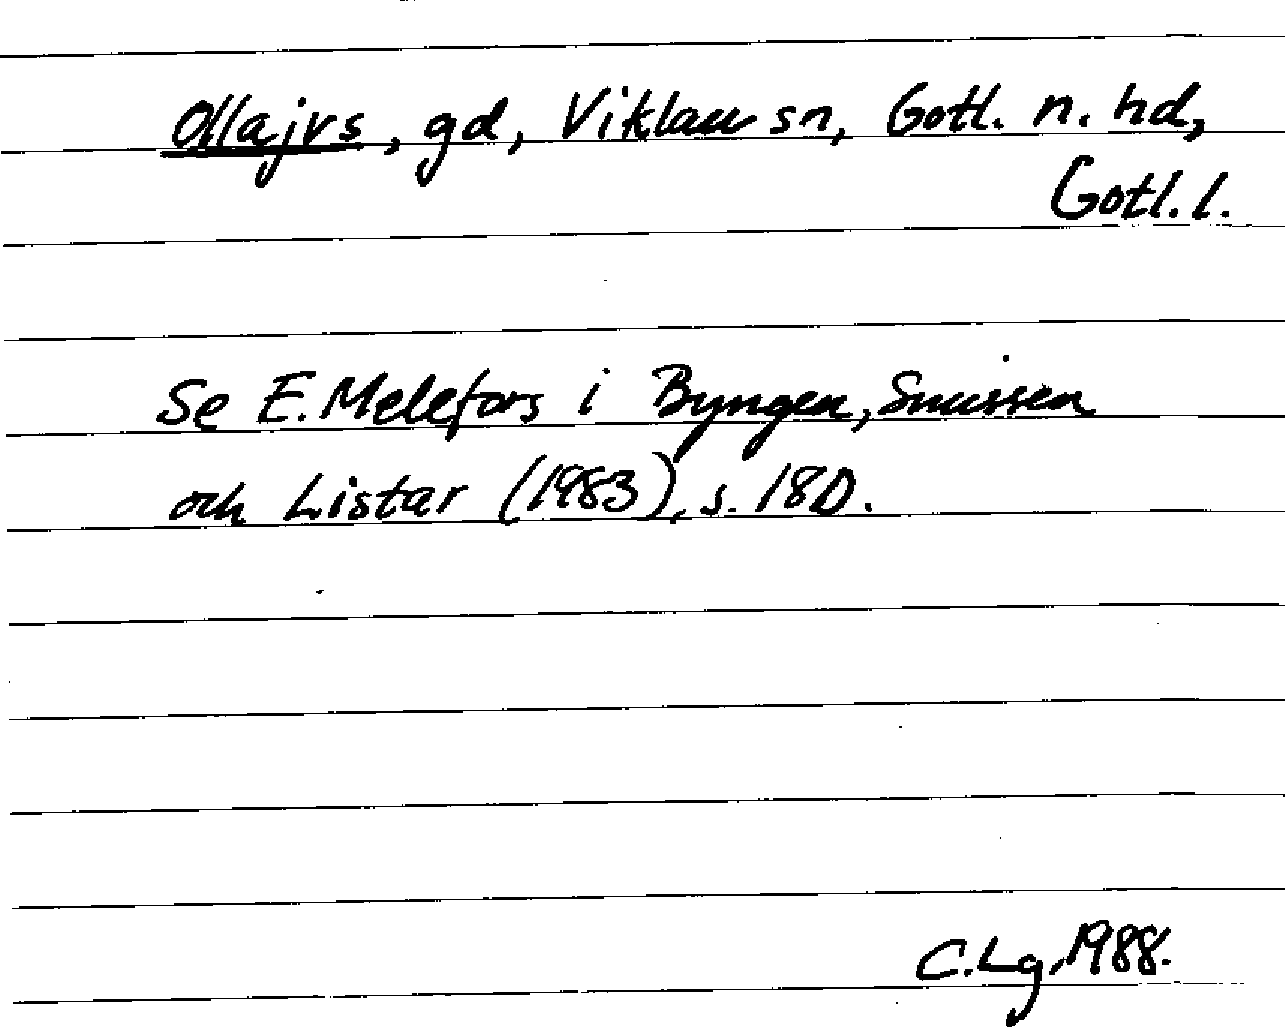 Ollajvs, gd, Viklau sn, Gotl. n. hd,
Gotl. l.
Se E. Melefors i Byngen, Smissen
och Listar (1983), s. 180.
C. Lg, 1988.